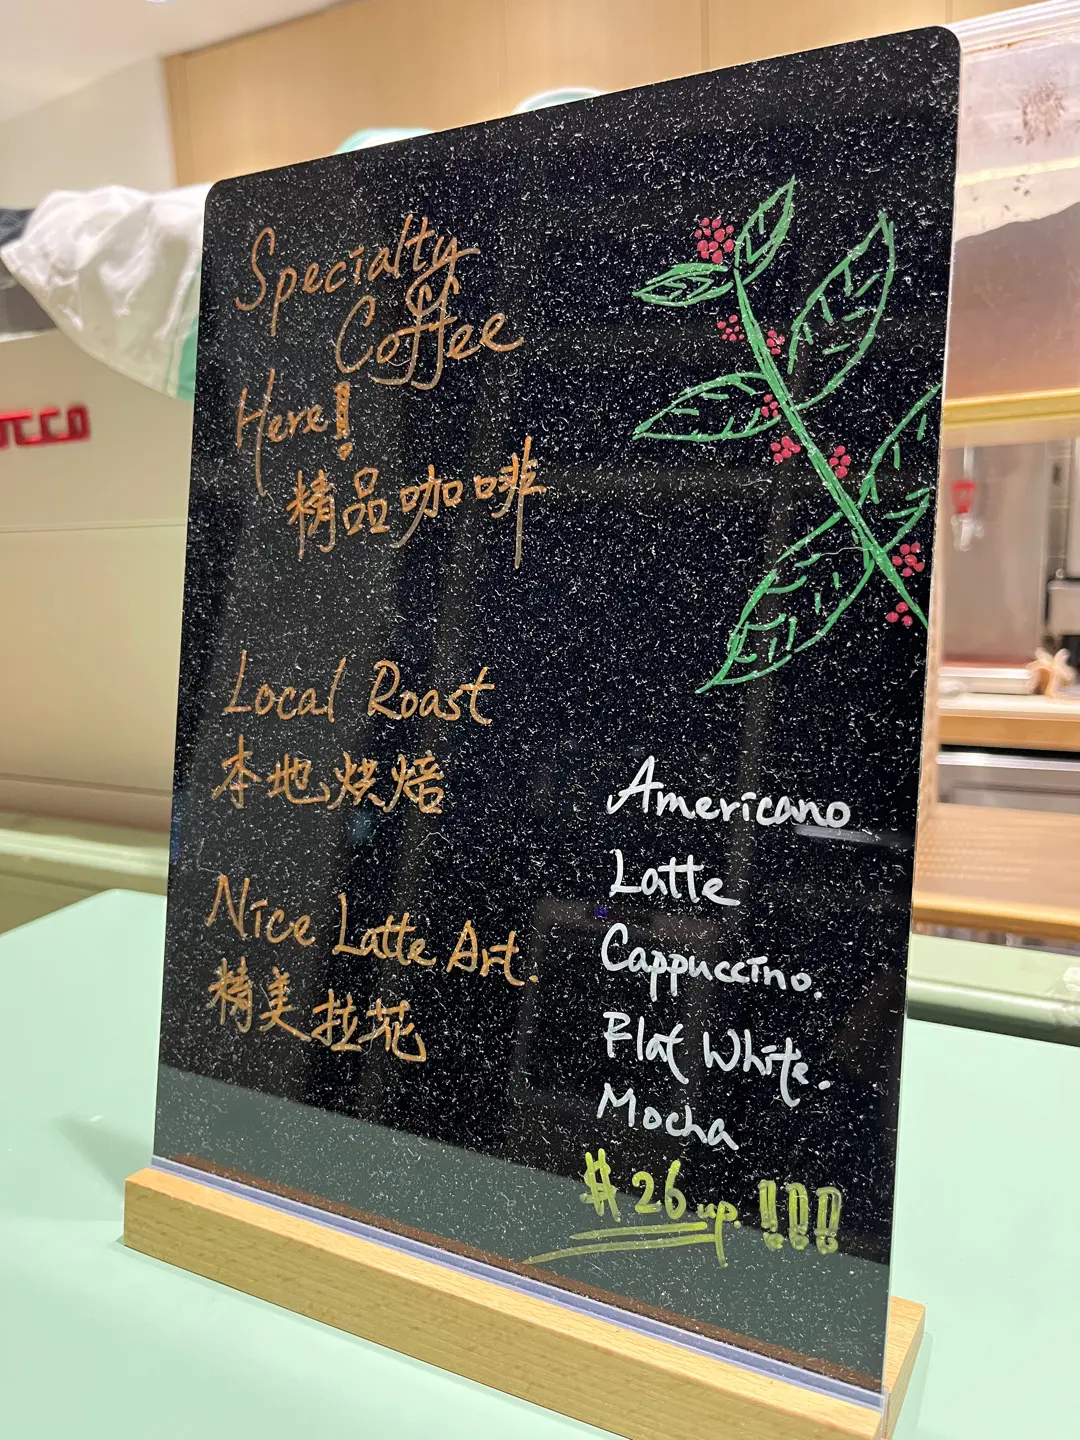 Specialty
Coffee
Here!
精品咖啡
Local Roast
本地烘焙
Nice Latte Art.
精美拉花
Americano
Latte
Cappuccino.
Flat White.
Mocha
$26 up. !!!